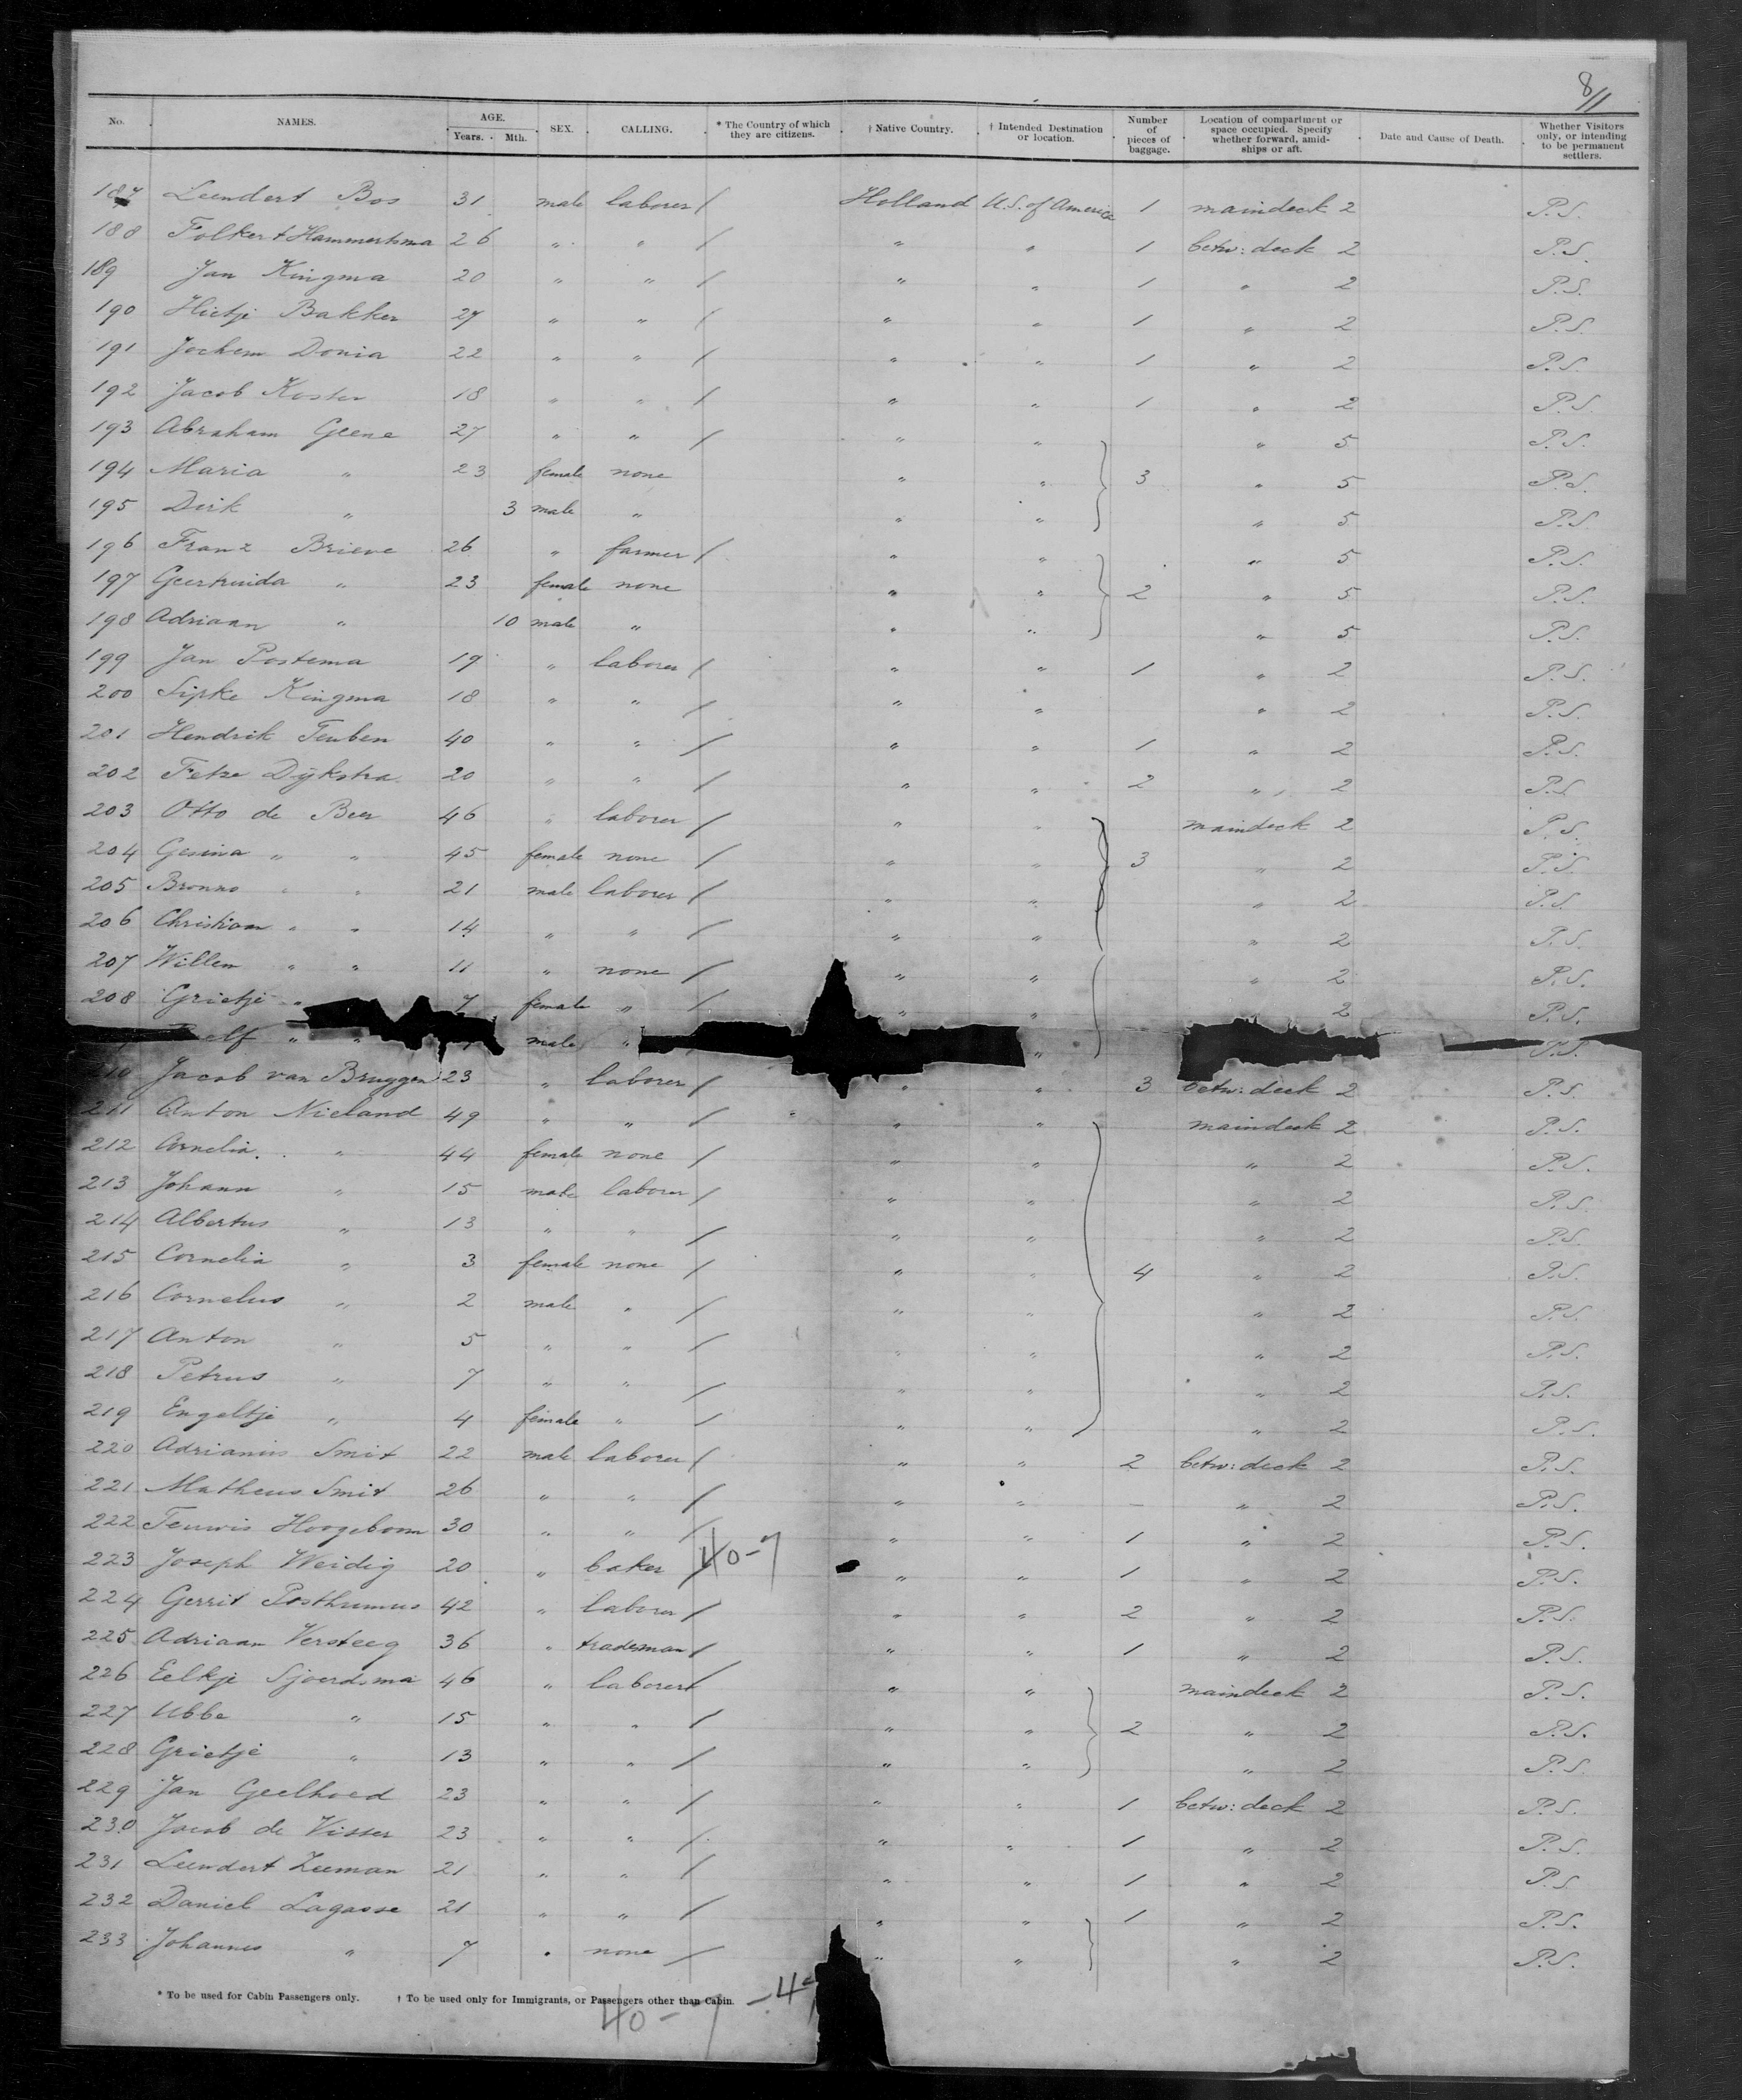 8/11
No. NAMES. AGE. Years. Mth. SEX. CALLING. * The Country of which they are citizens. † Native Country. † Intended Destination or location. Number of pieces of baggage. Location of compartment or space occupied. Specify whether forward, amidships or aft. Date and Cause of Death. Whether Visitors only, or intending to be permanent settlers.
187 Leendert Bos 31 male laborer / Holland U.S. of America 1 maindeck 2 P.S.
188 Folkert Hammertsma 26 " " / " " 1 betw: deck 2 P.S.
189 Jan Kingma 20 " " / " " 1 " 2 P.S.
190 Hietje Bakker 27 " " / " " 1 " 2 P.S.
191 Jochem Donia 22 " " / " " 1 " 2 P.S.
192 Jacob Koster 18 " " / " " 1 " 2 P.S.
193 Abraham Geene 27 " " / " " " 5 P.S.
194 Maria " 23 female none " " 3 " 5 P.S.
195 Dirk " 3 male " " " " 5 P.S.
196 Franz Brieve 26 " farmer / " " " 5 P.S.
197 Geertruida " 23 female none " " 2 " 5 P.S.
198 Adriaan " 10 male " " " " 5 P.S.
199 Jan Postema 19 " laborer / " " 1 " 2 P.S.
200 Sipke Kingma 18 " " / " " " 2 P.S.
201 Hendrik Teuben 40 " " / " " 1 " 2 P.S.
202 Fetze Dijkstra 20 " " / " " 2 " 2 P.S.
203 Otto de Beer 46 " laborer / " " maindeck 2 P.S.
204 Gesina " " 45 female none / " " 3 " 2 P.S.
205 Bronno " " 21 male laborer / " " " 2 P.S.
206 Christiaan " " 14 " " / " " " 2 P.S.
207 Willem " " 11 " none / " " " 2 P.S.
208 Grietje " 7 female " / " " 2 P.S.
elf " " male " " P.S.
210 Jacob van Bruggen 23 " laborer / " " 3 betw: deck 2 P.S.
211 Anton Nieland 49 " " / " " maindeck 2 P.S.
212 Cornelia " 44 female none / " " " 2 P.S.
213 Johann " 15 male laborer / " " " 2 P.S.
214 Albertus " 13 " " / " " " 2 P.S.
215 Cornelia " 3 female none / " " 4 " 2 P.S.
216 Cornelus " 2 male " / " " " 2 P.S.
217 Anton " 5 " " / " " " 2 P.S.
218 Petrus " 7 " " / " " " 2 P.S.
219 Engeltje " 4 female " / " " " 2 P.S.
220 Adrianus Smit 22 male laborer / " " 2 betw: deck 2 P.S.
221 Matheus Smit 26 " " / " " — " 2 P.S.
222 Teunis Hoogeboom 30 " " / " " 1 " 2 P.S.
223 Joseph Weidig 20 " baker / 40-7 " " 1 " 2 P.S.
224 Gerrit Posthumus 42 " laborer / " " 2 " 2 P.S.
225 Adriaan Versteeg 36 " trademan / " " 1 " 2 P.S.
226 Eelkje Sjoerdsma 46 " laborer / " " maindeck 2 P.S.
227 Ubbe " 15 " " / " " 2 " 2 P.S.
228 Grietje " 13 " " / " " " 2 P.S.
229 Jan Geelhoed 23 " " / " " 1 betw: deck 2 P.S.
230 Jacob de Visser 23 " " / " " 1 " 2 P.S.
231 Leendert Zeeman 21 " " / " " 1 " 2 P.S.
232 Daniel Lagasse 21 " " / " " 1 " 2 P.S.
233 Johannes " 7 " none / " " " 2 P.S.
* To be used for Cabin Passengers only. † To be used only for Immigrants, or Passengers other than Cabin.
40-7